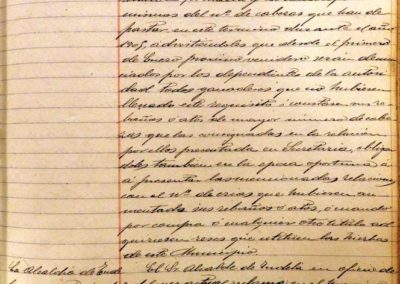 minimas del nº de cabezas que han de
pastar en este termino durante el año
1905, advirtiéndoles que desde el primero
de Enero proximo venidero seran denun-
ciados por los dependientes de la autori-
dad todos ganaderos que no hubiesen
llenado este requisito ó contasen sus re-
baños ó atos de mayor número de cabe-
zas que las consignadas en la relación
por ellos presentada en Secretaría, obligan-
doles tambien en la epoca oportuna á
presentar las mencionadas relaciones
con el nº de crias que hubiesen au-
mentado sus rebaños ó atos, ó cuando
por compra ó cualquier otro titulo ad-
quiriesen reses que utilicen las hierbas
de este Municipio.
La Alcaldia de Tude
El Sr. Alcalde de Tudela en oficio de
actual